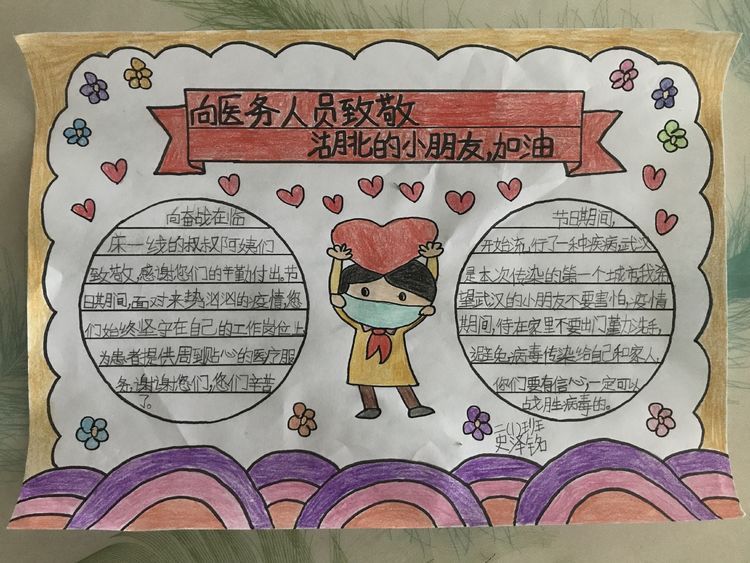 向医务人员致敬
湖北的小朋友,加油
向奋战在临
床一线的叔叔阿姨们
致敬,感谢您们的辛勤付出。节
日期间,面对来势汹汹的疫情,您
们始终坚守在自己的工作岗位上
为患者提供周到贴心的医疗服
务,谢谢您们,您们辛苦
了。
节日期间,
开始流行了一种疾病,武汉
是本次传染的第一个城市,我希
望武汉的小朋友不要害怕,疫情
期间,待在家里不要出门,勤力洗手,
避免病毒传染给自己和家人,
你们要有信心,一定可以
战胜病毒的。
二(1)班
史泽铭